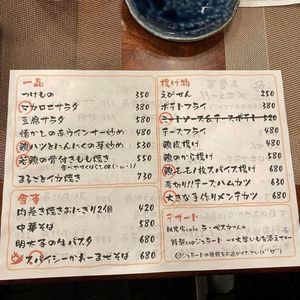 一品
つけもの 350
マカロニサラダ 380
豆腐サラダ 580
懐かしの赤ウインナー炒め 480
鶏ハツとにんにくの芽炒め 530
若鶏の骨付きもも焼き 550
まるごとイカ焼き 730
食事
肉巻き焼きおにぎり2個 420
中華そば 680
明太子の生パスタ 680
スパイシーかれーまぜそば 680
揚げ物
えびせん 250
ポテトフライ 380
ミートソース&チーズポテト 520
チーズフライ 380
鶏皮揚げ 480
鶏のから揚げ 580
鶏モモ1枚スパイス揚げ 680
厚切り!!チーズハムカツ 580
大きな手作りメンチカツ 680
デザート